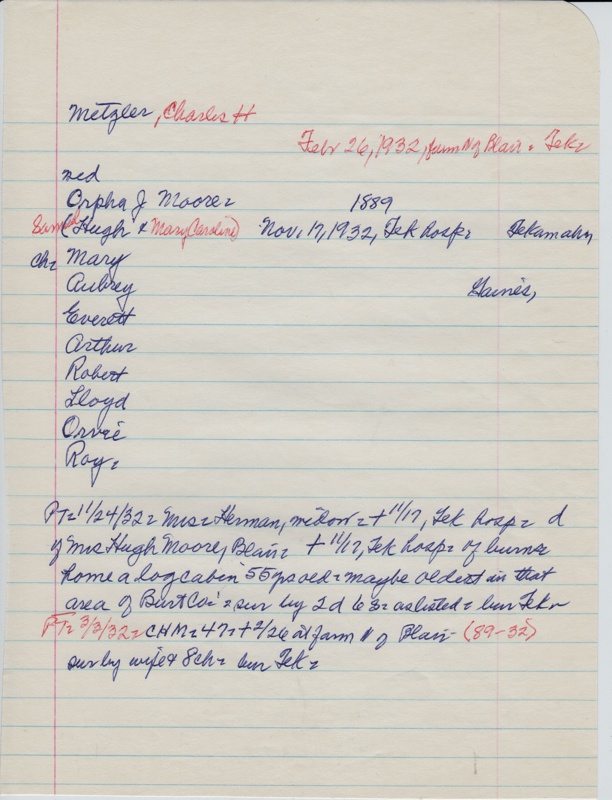 Metzler, Charles H
Febr 26, 1932, farm N of Blair = Tek=
md
Orpha J Moore= 1889
Samuel (Hugh & Mary Caroline) Nov. 17, 1932, Tek hosp= Tekamah
ch= Mary
Aubrey Gaines,
Everett
Arthur
Robert
Lloyd
Orvie
Roy=
PT= 11/24/32= Mrs= Herman, widow= + 11/17, Tek hosp= d
of Mrs Hugh Moore, Blair= + 11/17, Tek hosp= of burns=
home a log cabin 55 yrs old= maybe oldest in that
area of Burt Co.= sur by 2 d 6 s= as listed= bur Tek=
PT= 3/3/32= CHM= 47= + 2/26 at farm N of Blair- (89-32)
sur by wife & 8 ch= bur Tek=